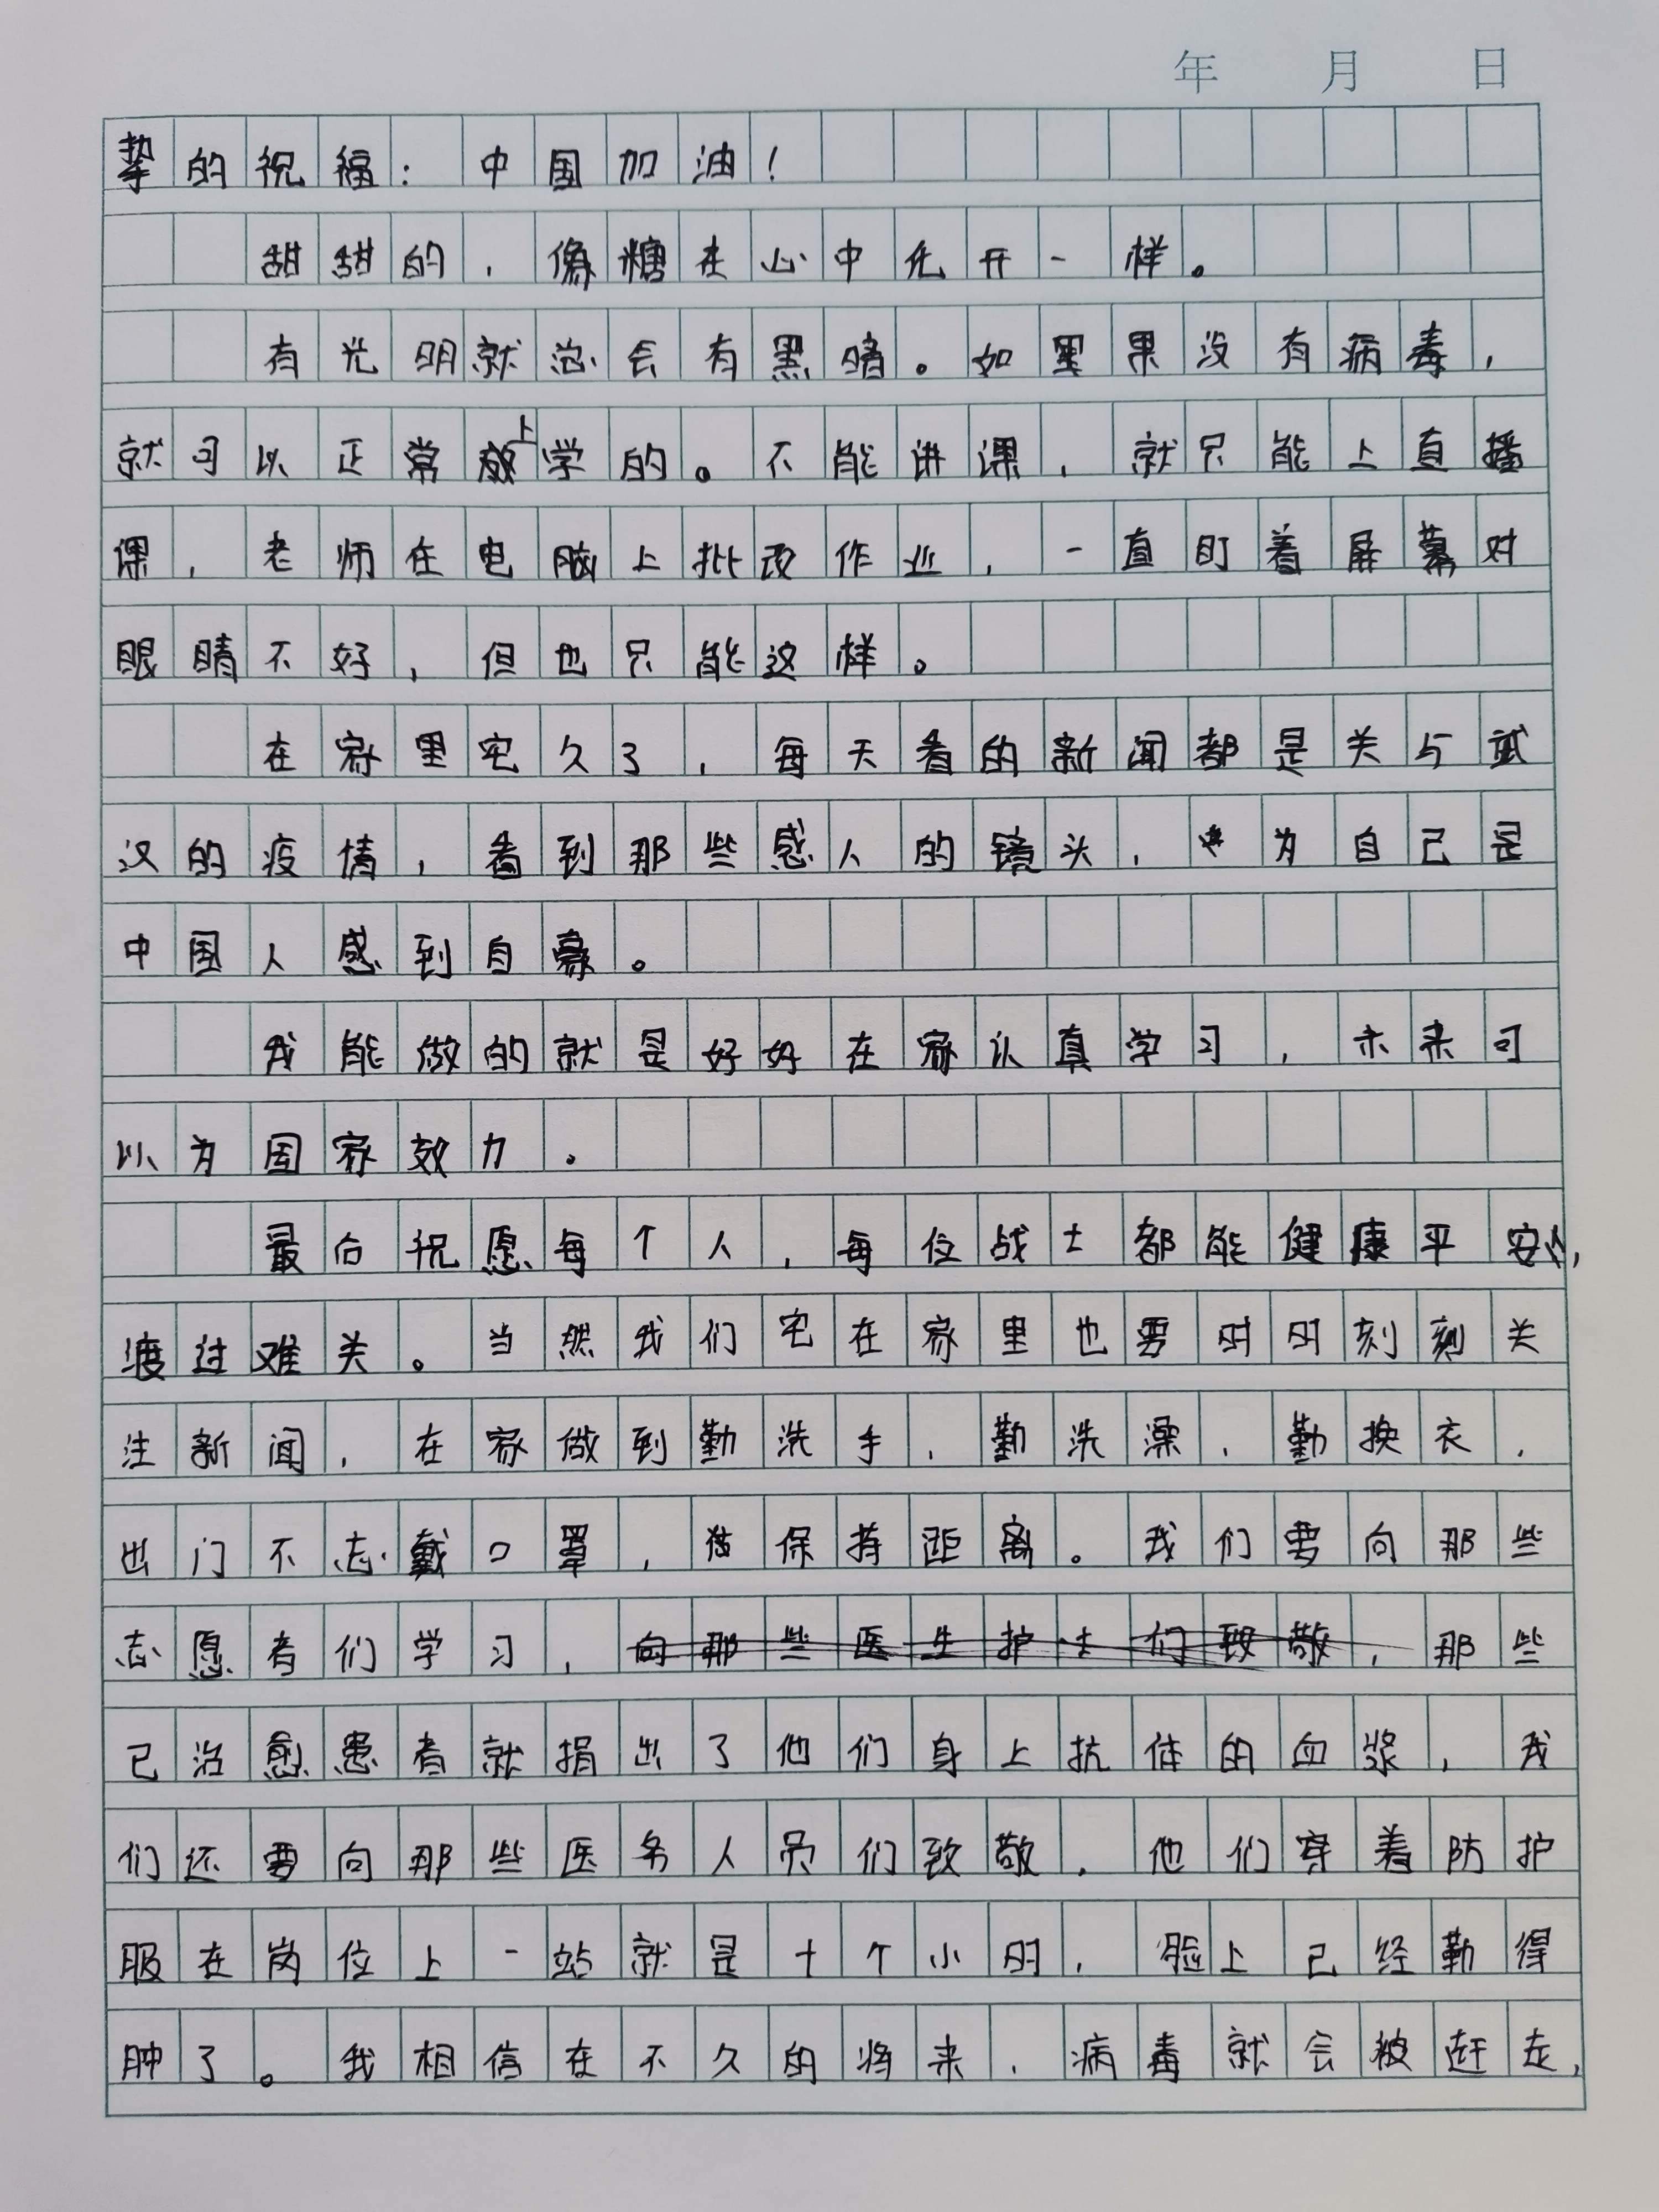 年 月 日
挚的祝福：中国加油！
甜甜的，像糖在心中化开一样。
有光明就总会有黑暗。如果没有病毒，
就可以正常上学的。不能讲课，就只能上直播
课，老师在电脑上批改作业，一直盯着屏幕对
眼睛不好，但也只能这样。
在家里宅久了，每天看的新闻都是关与武
汉的疫情，看到那些感人的镜头，为自己是
中国人感到自豪。
我能做的就是好好在家认真学习，未来可
以为国家效力。
最后祝愿每个人，每位战士都能健康平安，
渡过难关。当然我们宅在家里也要时时刻刻关
注新闻，在家做到勤洗手，勤洗澡，勤换衣，
出门不忘戴口罩，保持距离。我们要向那些
志愿者们学习，向那些医生护士们致敬，那些
已治愈患者就捐出了他们身上抗体的血浆，我
们还要向那些医务人员们致敬，他们穿着防护
服在岗位上一站就是十个小时，脸上已经勒得
肿了。我相信在不久的将来，病毒就会被赶走，